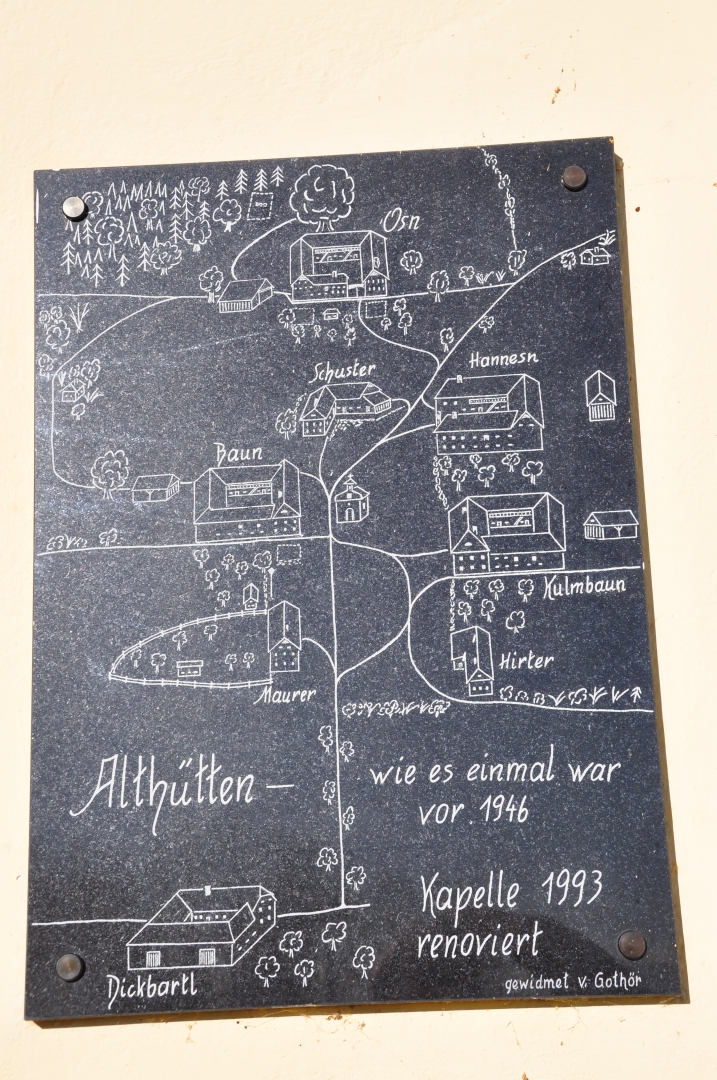 Osn
Schuster
Hannesn
Baun
Kulmbaun
Hirter
Maurer
Althütten –
wie es einmal war
vor 1946
Kapelle 1993
renoviert
Dickbartl
gewidmet v. Gothör